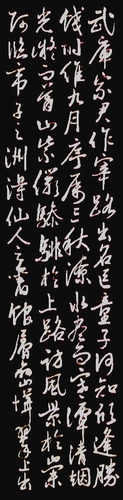 武庫家君作宰路出名區童子何知躬逢勝
餞時維九月序属三秋潦水盡而寒潭清烟
光凝而暮山紫儼驂騑於上路訪風景於崇
阿臨帝子之洲得仙人之舊館層巒聳翠上出